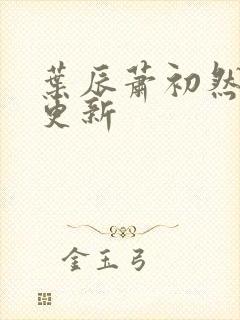 葉辰蕭初然
更新
金玉弓